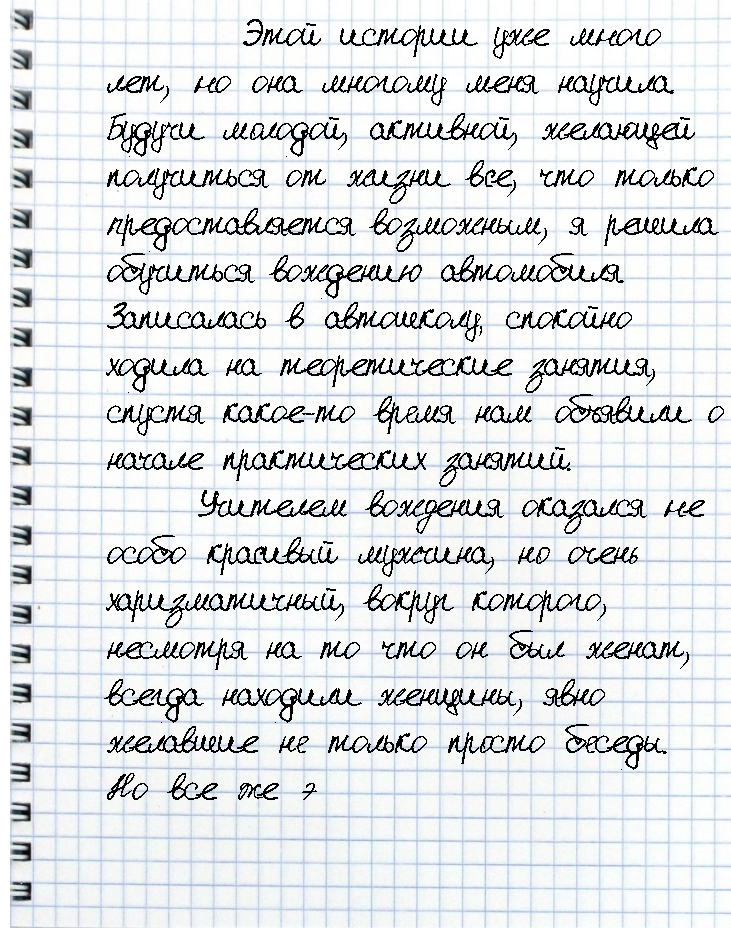 Этой истории уже много
лет, но она многому меня научила.
Будучи молодой, активной, желающей
получиться от жизни все, что только
предоставляется возможным, я решила
обучиться вождению автомобиля.
Записалась в автошколу, спокойно
ходила на теоретические занятия,
спустя какое-то время нам объявили о
начале практических занятий.
Учителем вождения оказался не
особо красивый мужчина, но очень
харизматичный, вокруг которого,
несмотря на то что он был женат,
всегда находили женщины, явно
желавшие не только просто беседы.
Но все же э